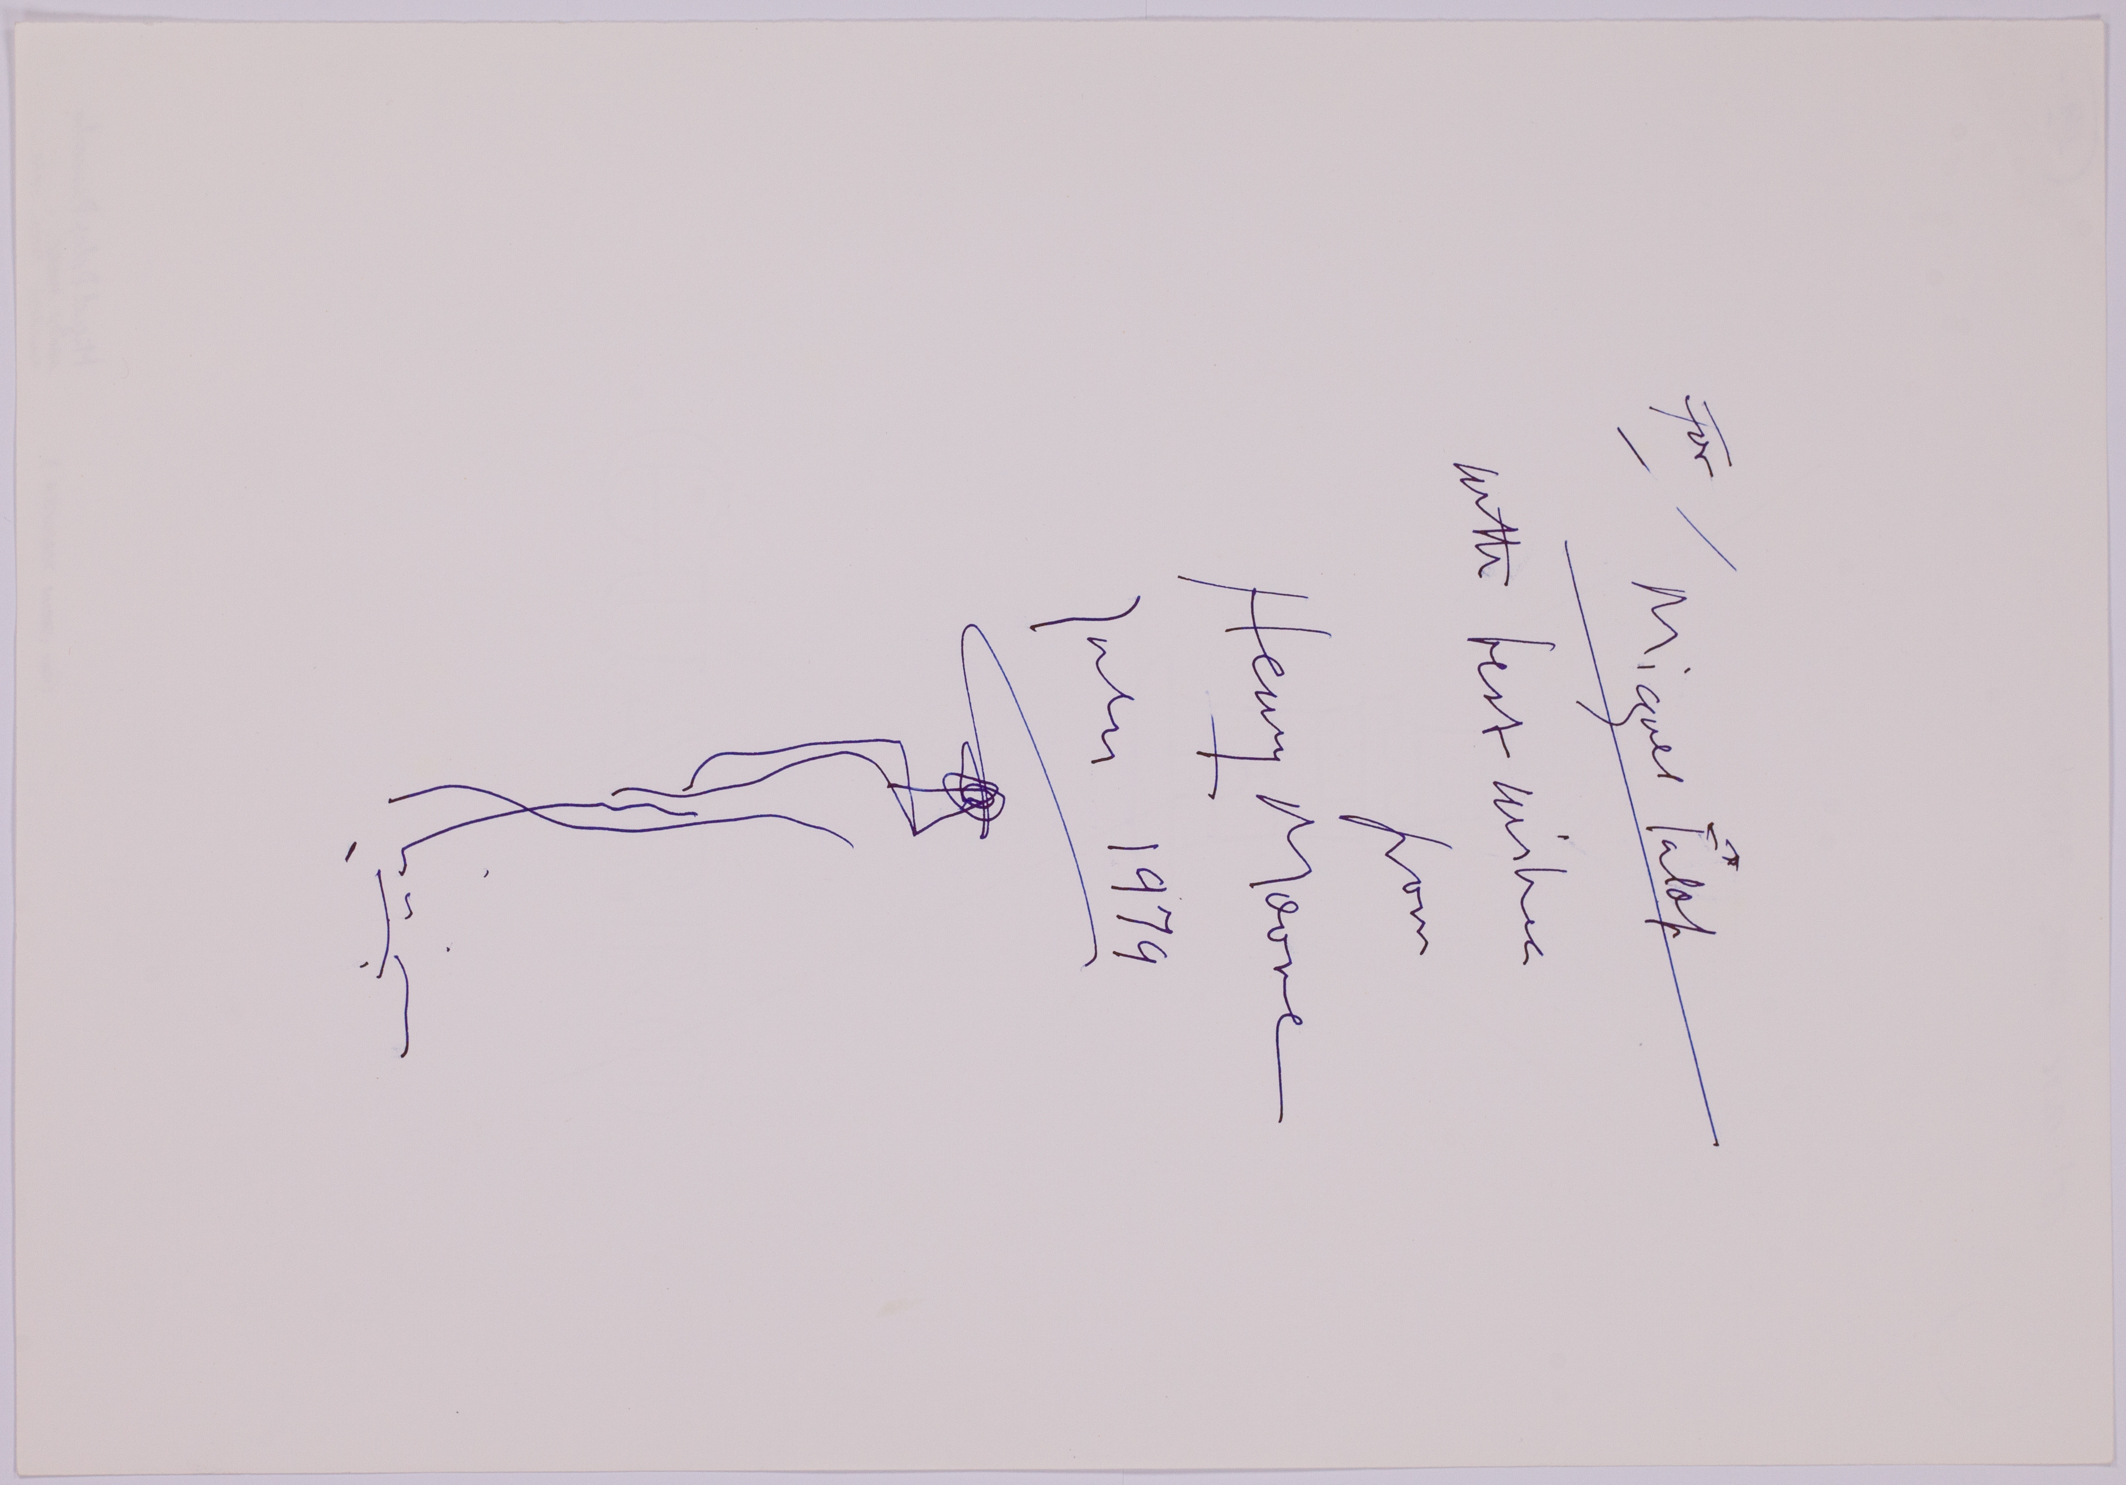 For Miguel
with best wishes
from
Henry Moore
July 1979